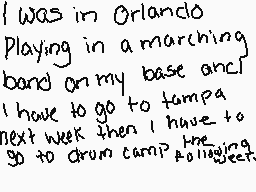 I was in Orlando
Playing in a marching
band on my base and
I have to go to tampa
next week then I have to
go to drum camp the following week.